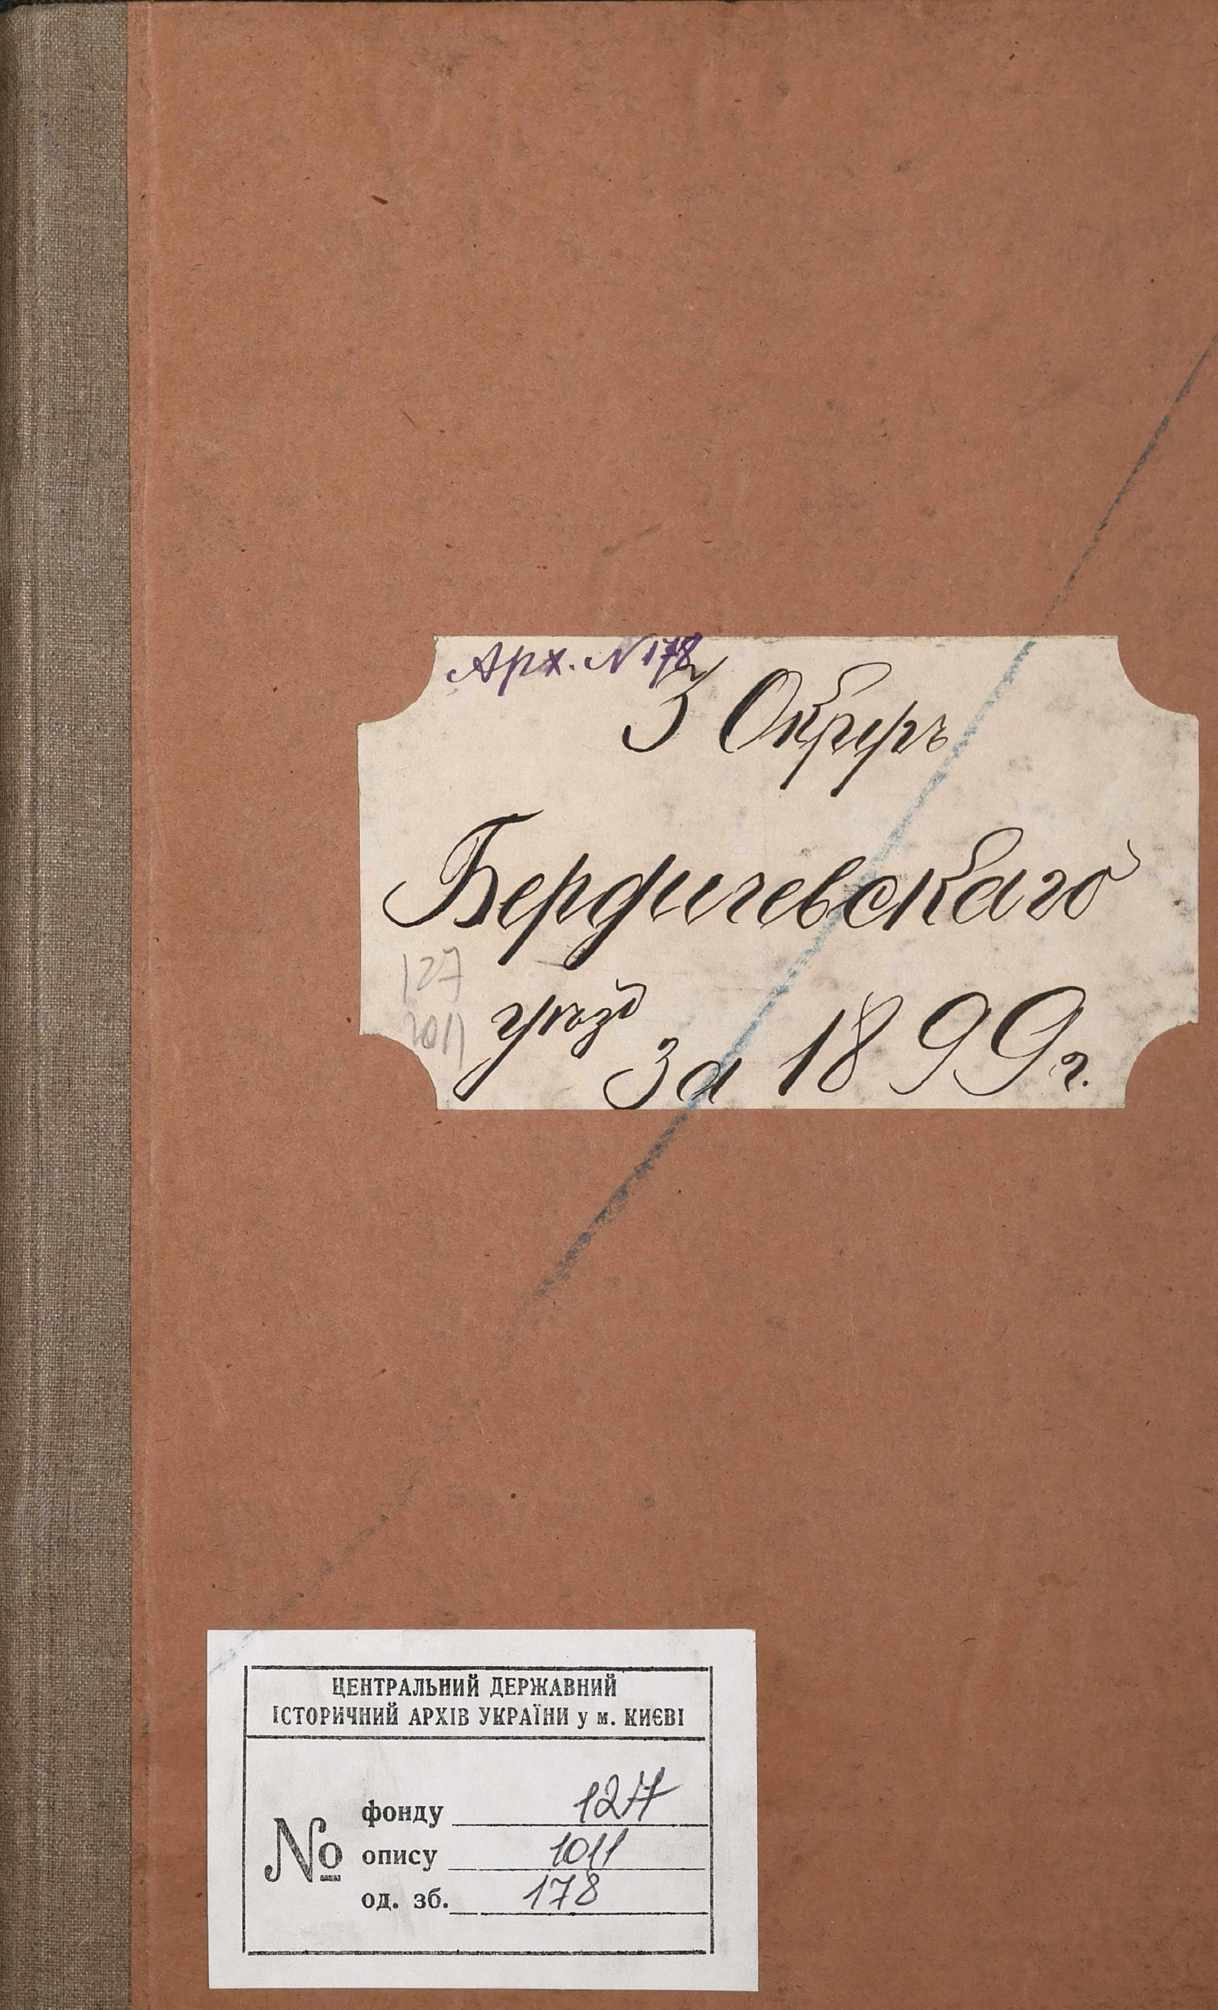 Арх. N 178
3 Округъ
Бердичевскаго
127
1011
уѣзд
за 1899 г.
ЦЕНТРАЛЬНИЙ ДЕРЖАВНИЙ
ІСТОРИЧНИЙ АРХІВ УКРАЇНИ у м. КИЄВІ
№
фонду 127
опису 1011
од. зб. 178